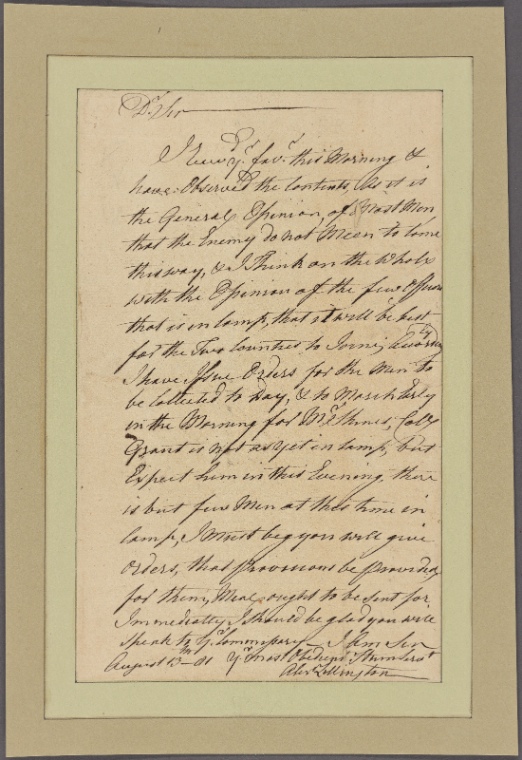 Dr. Sir
I Recd. Yr. favr. this Morning &
have Observed the Contents, As it is
the General Opinion, of Most Men
that the Enemy do not Mean to Come
this way, & I Think on the whole
with the Opinion of the few Officers
that is in Camp, that it will be best
for the Two Counties to Joine, Accordingly
I have Issue Orders for the Men to
be Collected to Day, & to March Erly
in the Morning for Coll.
Grant is not as yet in Camp, but
Expect him in this Evening, there
is but few Men at this time in
Camp, I Must beg you will give
Orders, that provisions be provided
for them, Meal ought to be Sent for
Immediatly I Should be glad you will
Speak to Yr. Commissary I Am Sir
August 13th 81 Yr. Most Obedient Humb Servt
Alexr Lillington